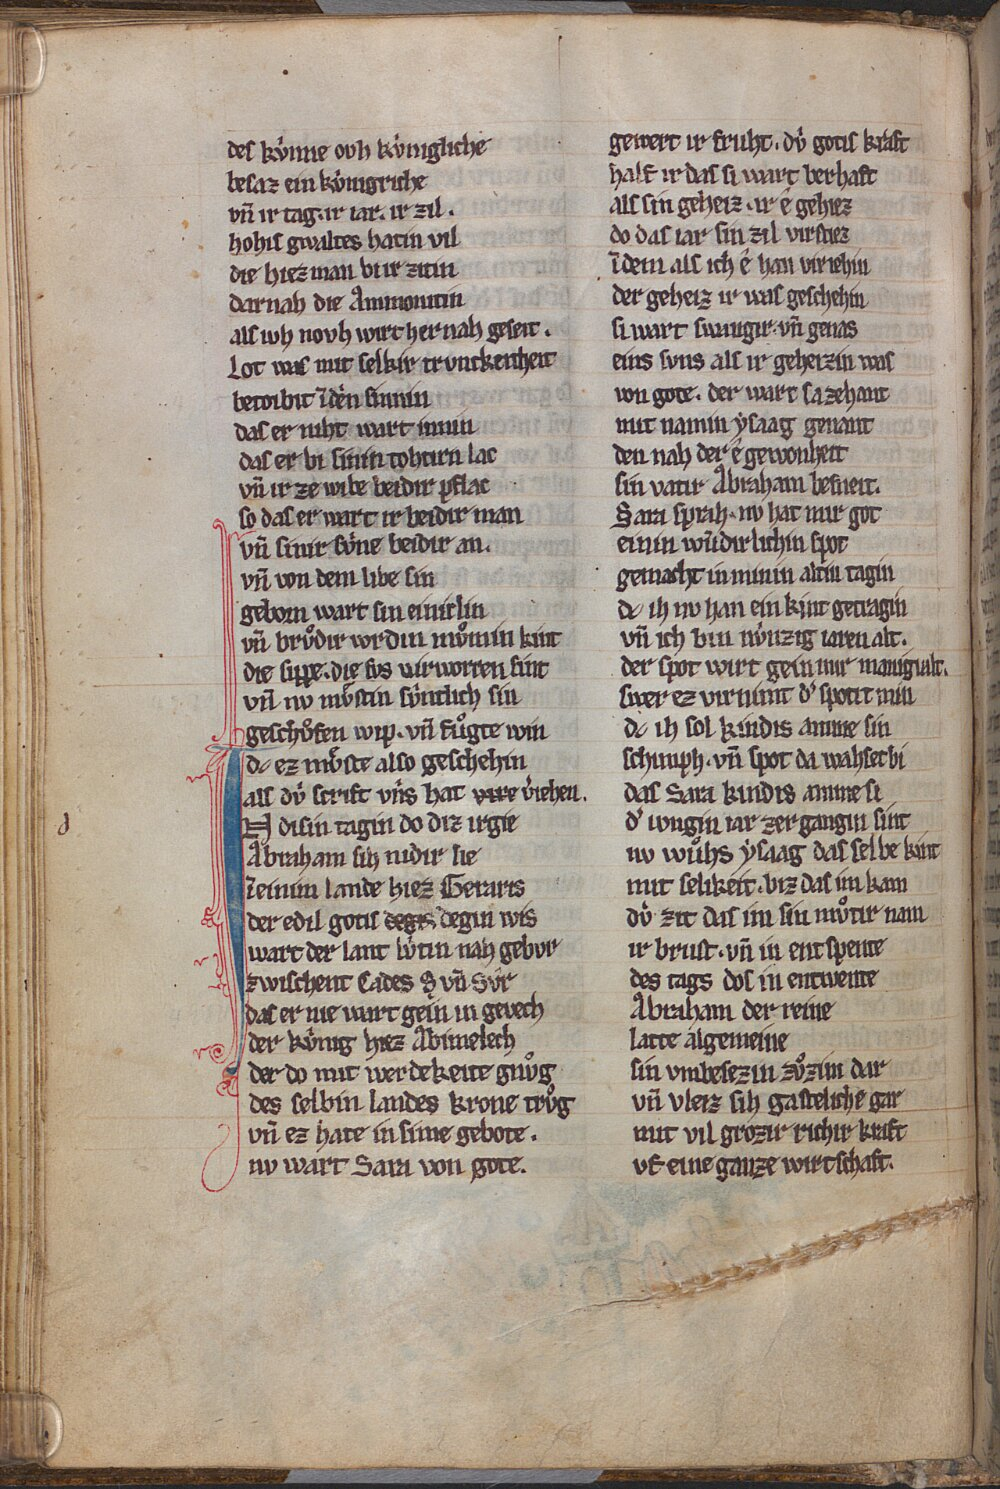 des kv́nne ovh kv́nigliche
besaz ein kv́nigriche
vn̄ ir tag. ir iar. ir zil.
hohis gwaltes hatin vil
die hiez man bi ir zitin
darnah die Ammonitin
als ich novh wirt her nah geseit.
Lot was mit selkir trvnckenheit
betoibit ī dēn sinnin
das er niht wart innin
das er bi sinin tohtirn lac
vn̄ ir ze wibe beidir pflac
so das er wart ir beidir man
vn̄ sinir sv́ne beidir an.
vn̄ von dem libe sin
geborn wart sin einirlin
vn̄ brv̊dir wrdin mv̊min kint
die sippe. die svs virworren sint
vn̄ nv mv̊stin sv́ntlich sin
geschv̊fen wip. vn̄ fv̊gte win
dc ez mv̊ste also geschehin
als dv́ scrift vn̄s hat v̓iehen.
N disin tagin do diz irgie
Abraham sih nidir lie
ī einim lande hiez Geraris
der edil gotis degin wis
wart der lant lv́tin nah gebvr
zwischent Cades vn̄ Svr
das er nie wart gein in gevech
der kv́nig hiez Abimelech
der do mit werdekeite gnv̊g
des selbin landes krone trv̊g
vn̄ ez hate in sime gebote.
nv wart Sara von gote.
gewert ir fruht. dv́ gotis kraft
half ir das si wart berhaft
als sin geheiz. ir é gehiez
do das iar sin zil virstiez
ī dem als ich é han viriehin
der geheiz ir was geschehin
si wart swangir. vn̄ genas
eins svns als ir geheizin was
von gote. der wart sa zehant
mit namin ẏsaag genant
den nah der é gewonheit
sin vatir Abraham besneit.
Sara sprah. nv hat mir got
einin wūdirlichin spot
gemacht in minin altin tagin
dc ih nv han ein kint getragin
vn̄ ich bin nv́nzig iaren alt.
der spot wirt gein mir manigvalt.
swer ez virnimt d̓ spotit min
dc ih sol kindis amme sin
schimph. vn̄ spot da wahset bi
das Sara kindis amme si
d̓ ivngin iar zergangin sint
nv wv̊hs ẏsaag das selbe kint
mit selikeit. biz das im kam
dv́ zit das im sin mv̊tir nam
ir brust. vn̄ in entspente
des tags dos in entwente
Abraham der reine
latte algemeine
sin vmbesezin zv̊zim dar
vn̄ vleiz sih gasteliche gar
mit vil grozir richir kraft
vf eine ganze wirtschaft.